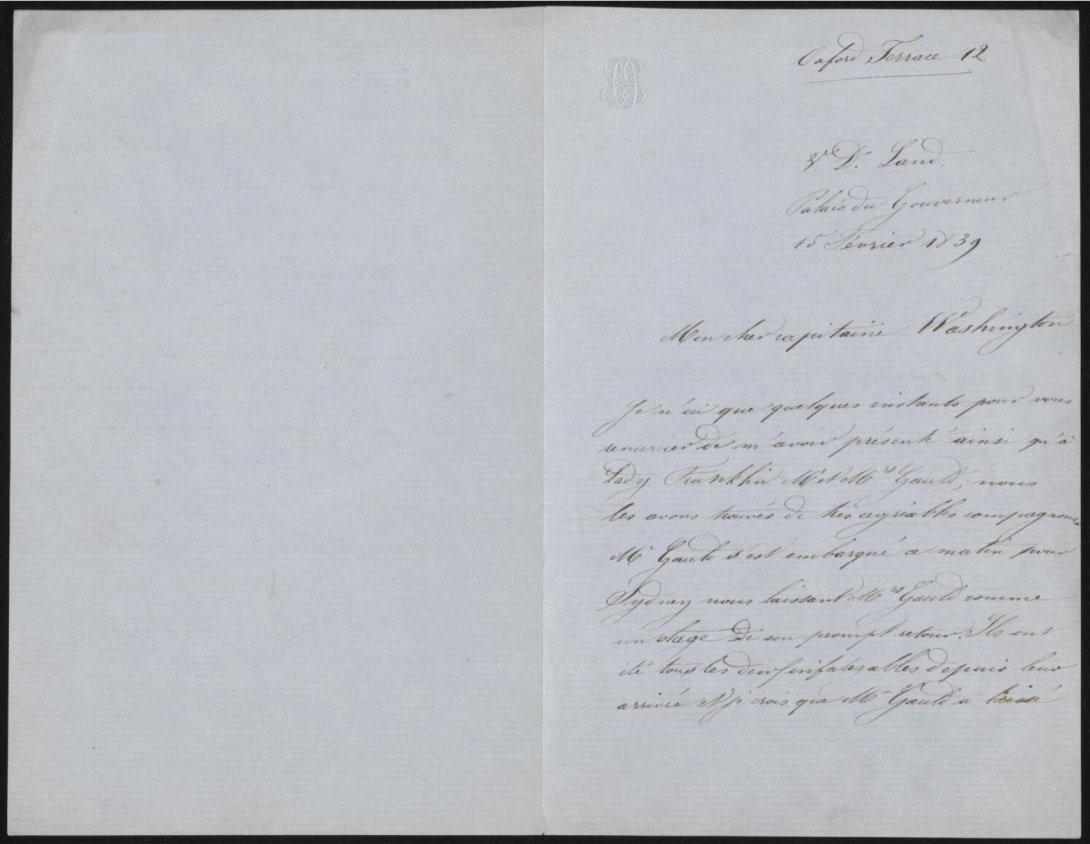 Oxford Terrace 12
V D. Land.
Palais du Gouverneur
15 Février 1839
Mon cher capitaine Washington
Je n'ai que quelques instants pour vous
remercier de m'avoir présenté ainsi qu'à
Lady Franklin Mr et Mrs Gauld; nous
les avons trouvés de très agréables compagnons
Mr Gauld s'est embarqué ce matin pour
Sydney nous laissant Mrs Gauld comme
un otage de son prompt retour. Ils ont
été tous les deux infatigables depuis leur
arrivée et je crois que Mr Gauld a laissé